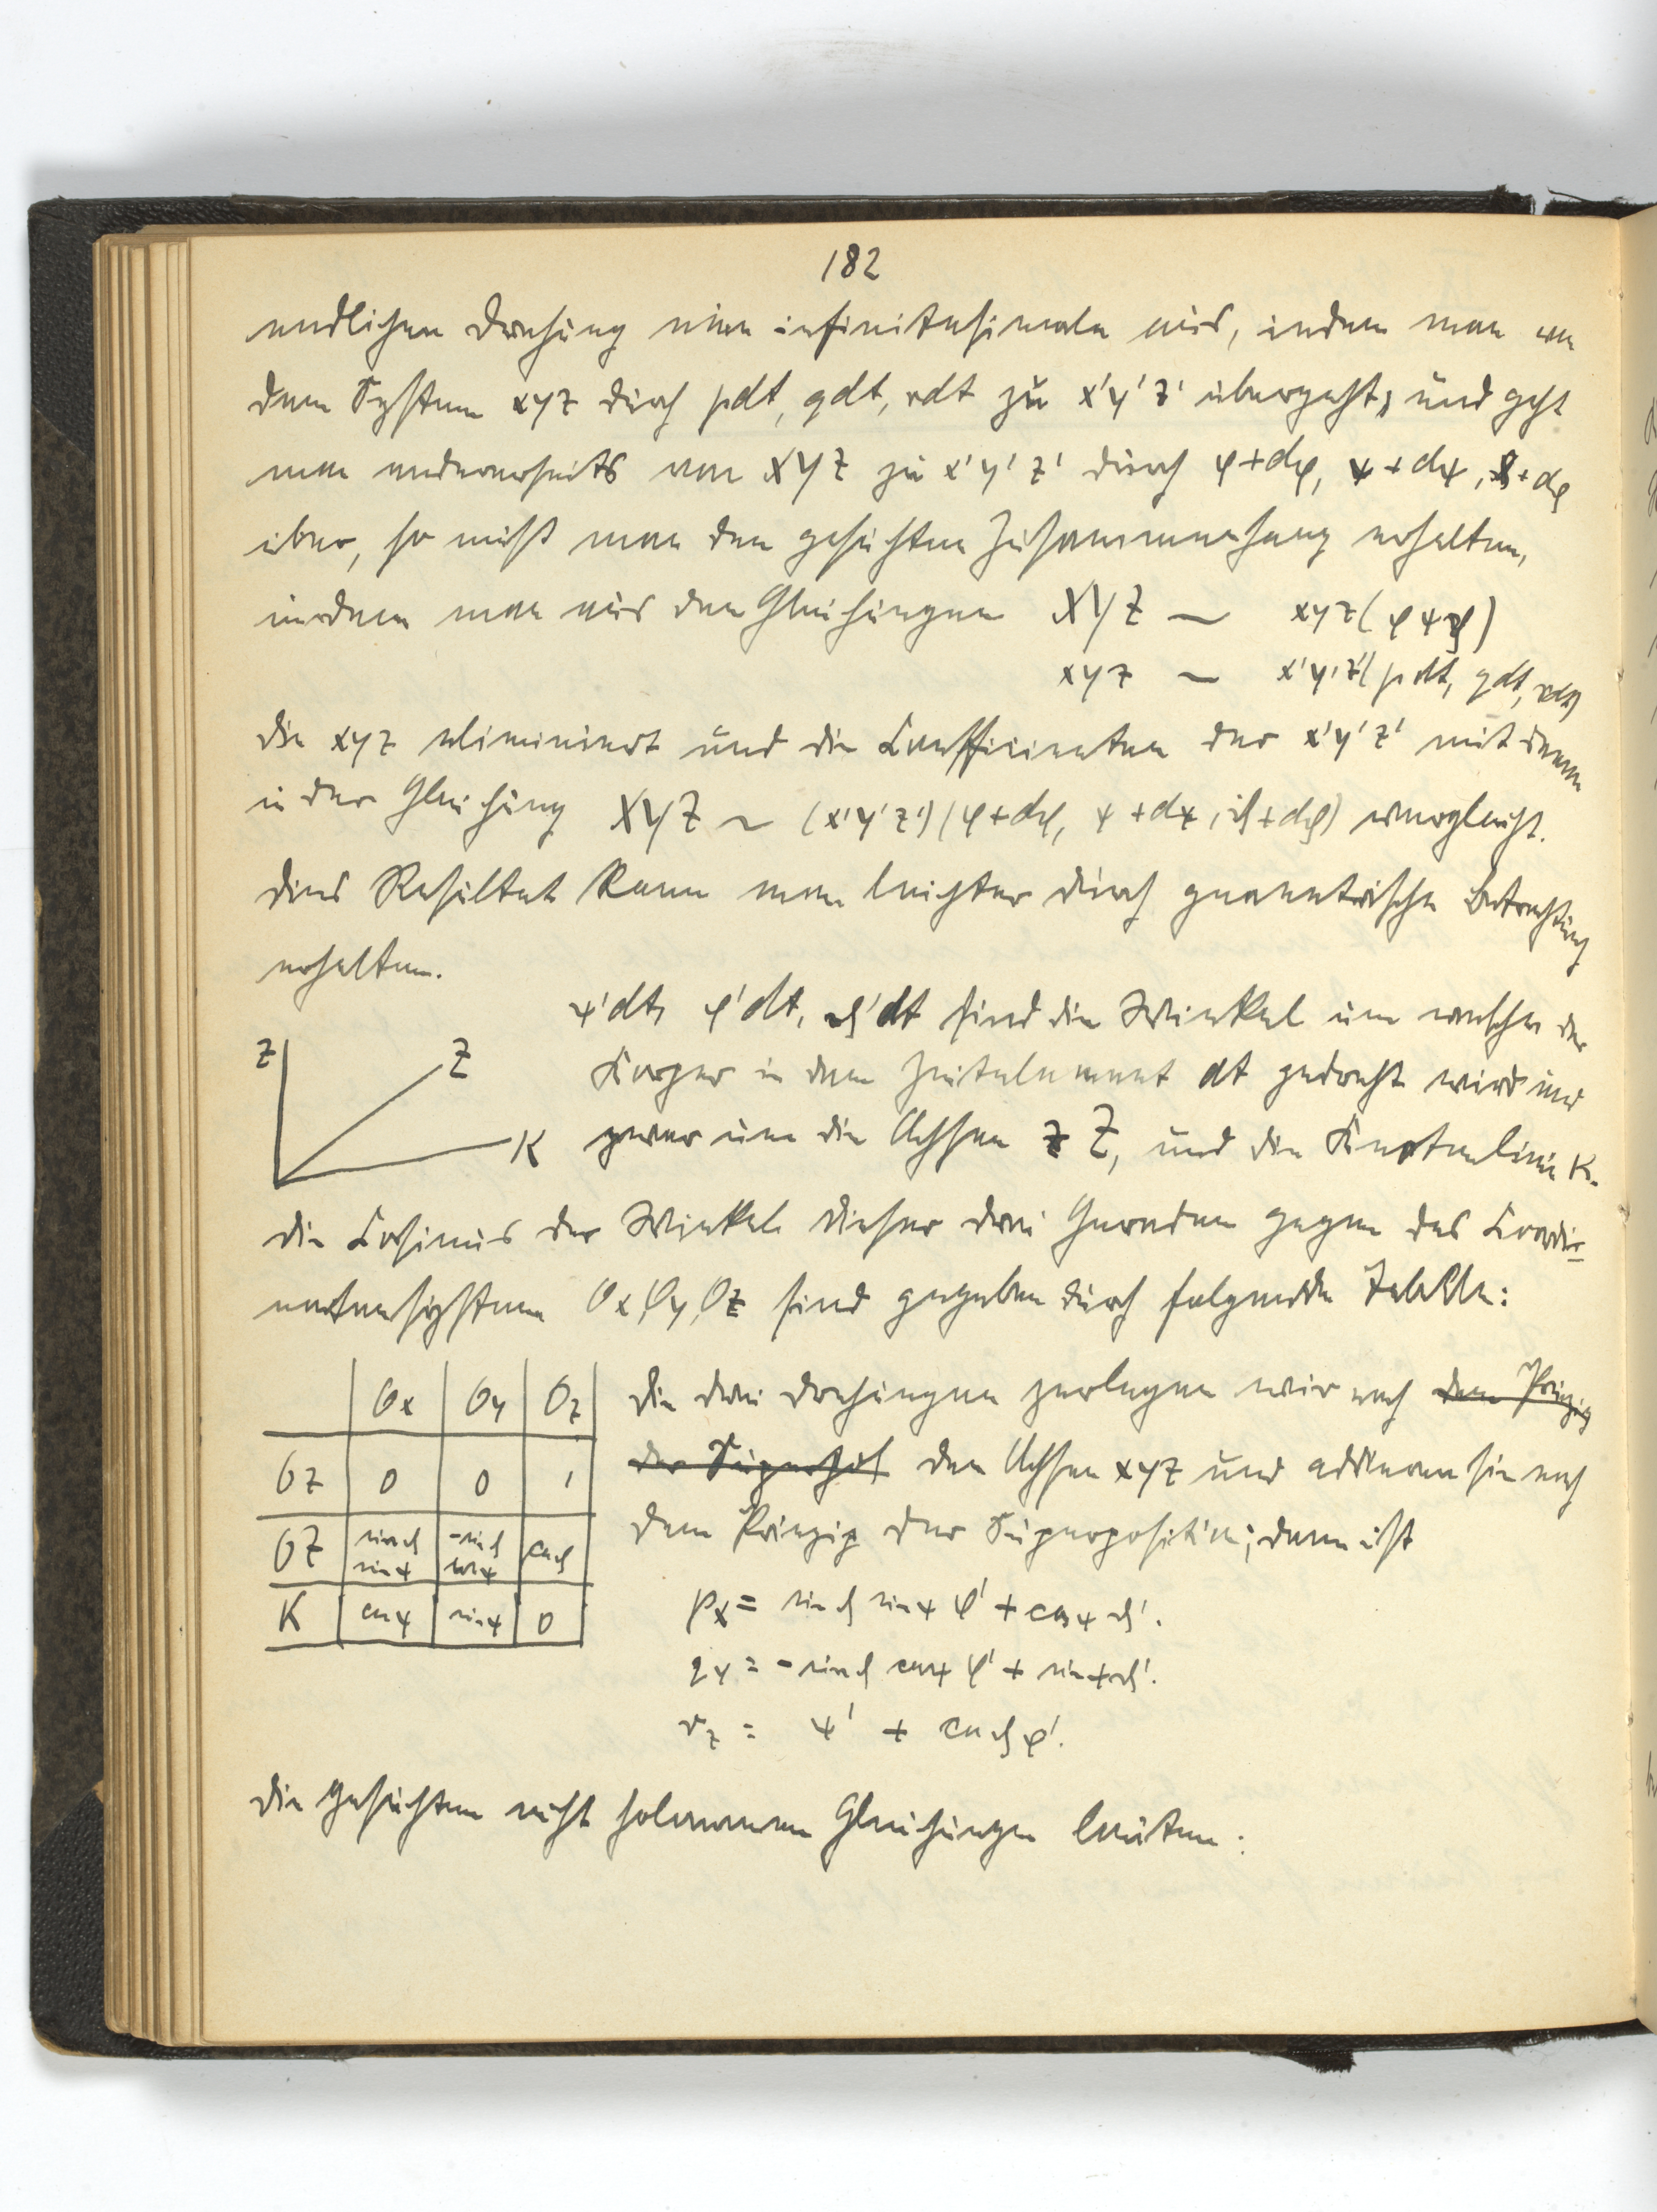 182
endlichen Drehung eine infinitesimale aus, indem man von
dem System xyz durch pdt, qdt, rdt zu x'y'z' übergeht; und geht
man andererseits von XYZ zu x'y'z' durch φ+dφ, ψ+dψ, ϑ+dϑ
über, so muß man den gesuchten Zusammenhang erhalten,
indem man aus den Gleichungen XYZ ~ xyz(φψϑ)
xyz ~ x'y'z'(pdt, qdt, rdt)
die xyz eliminiert und die Coefficienten der x'y'z' mit denen
in der Gleichung XYZ ~ (x'y'z')(φ+dφ, ψ+dψ, ϑ+dϑ) vergleicht.
Dies Resultat kann man leichter durch geometrische Betrachtung
erhalten.
ψ'dt, φ'dt, ϑ'dt sind die Winkel um welche der
Körper in dem Zeitelement dt gedreht wird und
zwar um die Achsen z Z, und die Knotenlinie K.
z Z K
Die Cosinus der Winkel dieser drei Geraden gegen das Coordi-
natensystem Ox, Oy, Oz sind gegeben durch folgende Tabelle:
Ox Oy Oz
Oz 0 0 1
OZ sinϑ sinψ -sinϑ cosψ cosϑ
K cosψ sinψ 0
Die drei Drehungen zerlegen wir nach dem Prinzip
der Superposit den Achsen xyz und addieren sie nach
dem Prinzip der Superposition; dann ist
px = sinϑ sinψ φ' + cosψ ϑ'.
qy = -sinϑ cosψ φ' + sinψ ϑ'.
rz = ψ' + cosϑ φ'.
Die gesuchten nicht holonomen Gleichungen lauten: